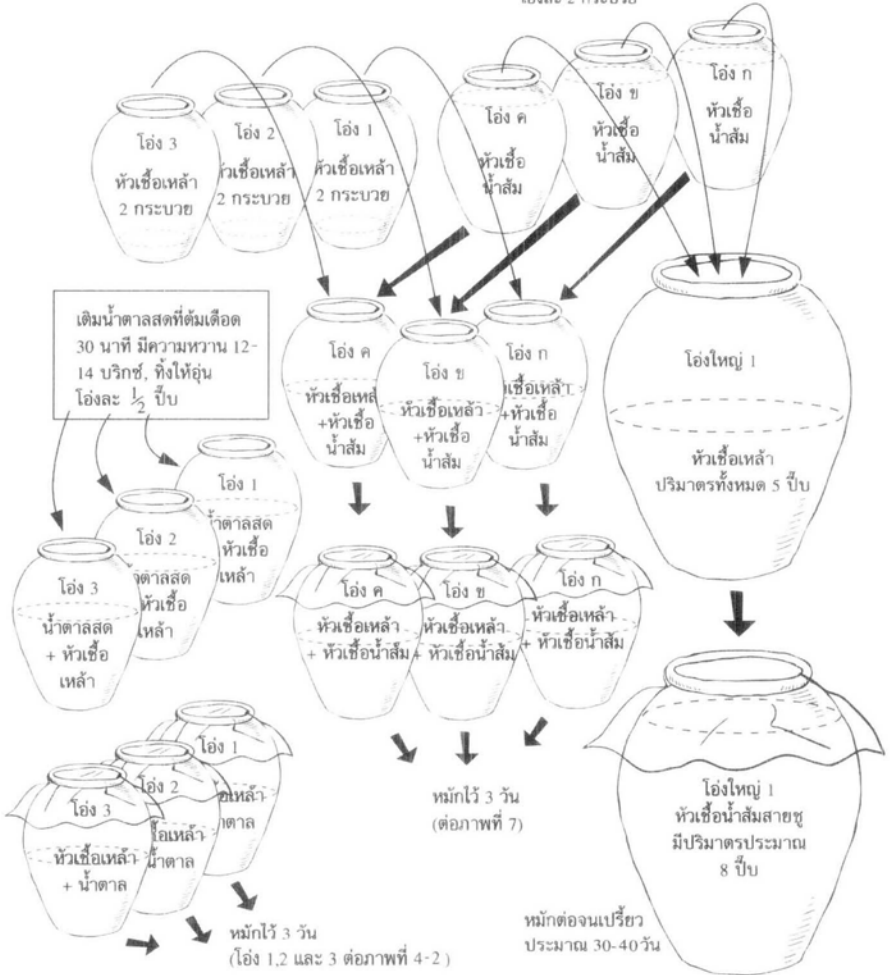 โอ่งละ 2 กระบวย
โอ่ง 3
หัวเชื้อเหล้า
2 กระบวย
โอ่ง 2
หัวเชื้อเหล้า
2 กระบวย
โอ่ง 1
หัวเชื้อเหล้า
2 กระบวย
โอ่ง ค
หัวเชื้อ
น้ำส้ม
โอ่ง ข
หัวเชื้อ
น้ำส้ม
โอ่ง ก
หัวเชื้อ
น้ำส้ม
เติมน้ำตาลสดที่ต้มเดือด
30 นาที มีความหวาน 12-
14 บริกซ์, ทิ้งให้อุ่น
โอ่งละ 1/2 ปี๊บ
โอ่ง ค
หัวเชื้อเหล้
+หัวเชื้อ
น้ำส้ม
โอ่ง ข
หัวเชื้อเหล้า
+หัวเชื้อ
น้ำส้ม
โอ่ง ก
เชื้อเหล้า
+หัวเชื้อ
น้ำส้ม
โอ่งใหญ่ 1
หัวเชื้อเหล้า
ปริมาตรทั้งหมด 5 ปี๊บ
โอ่ง 1
น้ำตาลสด
หัวเชื้อ
เหล้า
โอ่ง 2
ตาลสด
หัวเชื้อ
เหล้า
โอ่ง 3
น้ำตาลสด
+ หัวเชื้อ
เหล้า
โอ่ง ค
หัวเชื้อเหล้า
+ หัวเชื้อน้ำส้ม
โอ่ง ข
หัวเชื้อเหล้า
+ หัวเชื้อน้ำส้ม
โอ่ง ก
หัวเชื้อเหล้า
+ หัวเชื้อน้ำส้ม
โอ่ง 1
เหล้า
ตาล
โอ่ง 2
เชื้อเหล้า
น้ำตาล
โอ่ง 3
หัวเชื้อเหล้า
+ น้ำตาล
หมักไว้ 3 วัน
(ต่อภาพที่ 7)
โอ่งใหญ่ 1
หัวเชื้อน้ำส้มสายชู
มีปริมาตรประมาณ
8 ปี๊บ
หมักไว้ 3 วัน
(โอ่ง 1,2 และ 3 ต่อภาพที่ 4-2 )
หมักต่อจนเปรี้ยว
ประมาณ 30-40วัน